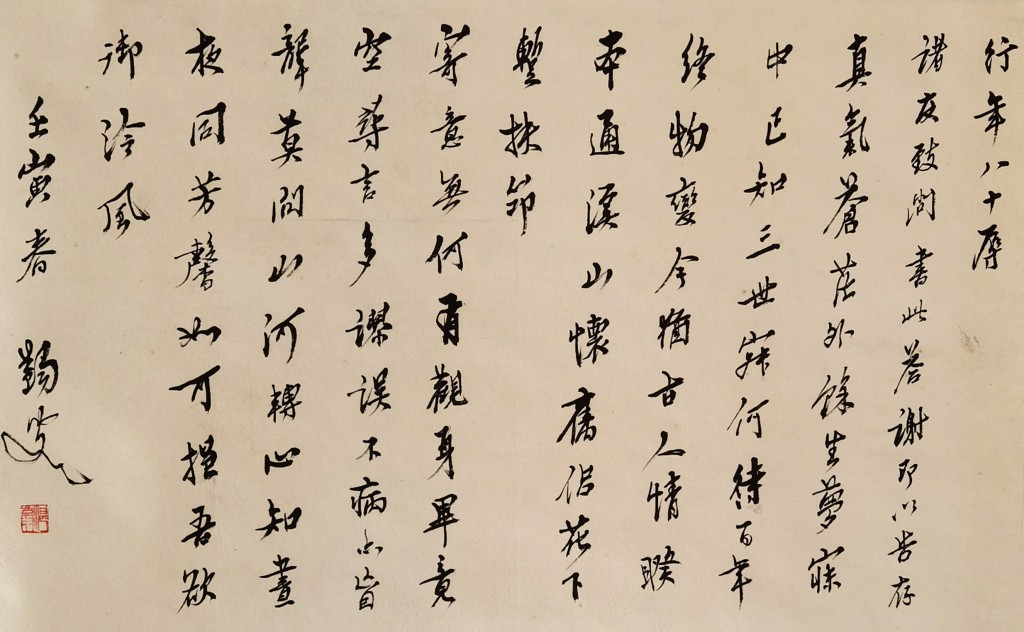 行年八十辱
諸友致問書此答謝即以告存
真氣蒼茫外餘生夢寐
中已知三世寂何待百年
終物變今猶古人情睽
本通溪山懷舊侶花下
暫扶筇
寄意無何有觀身畢竟
空尋言多謬誤不病亦盲
聾莫問山河轉心知晝
夜同芳馨如可挹吾欲
御泠風
壬寅春 蠲叟